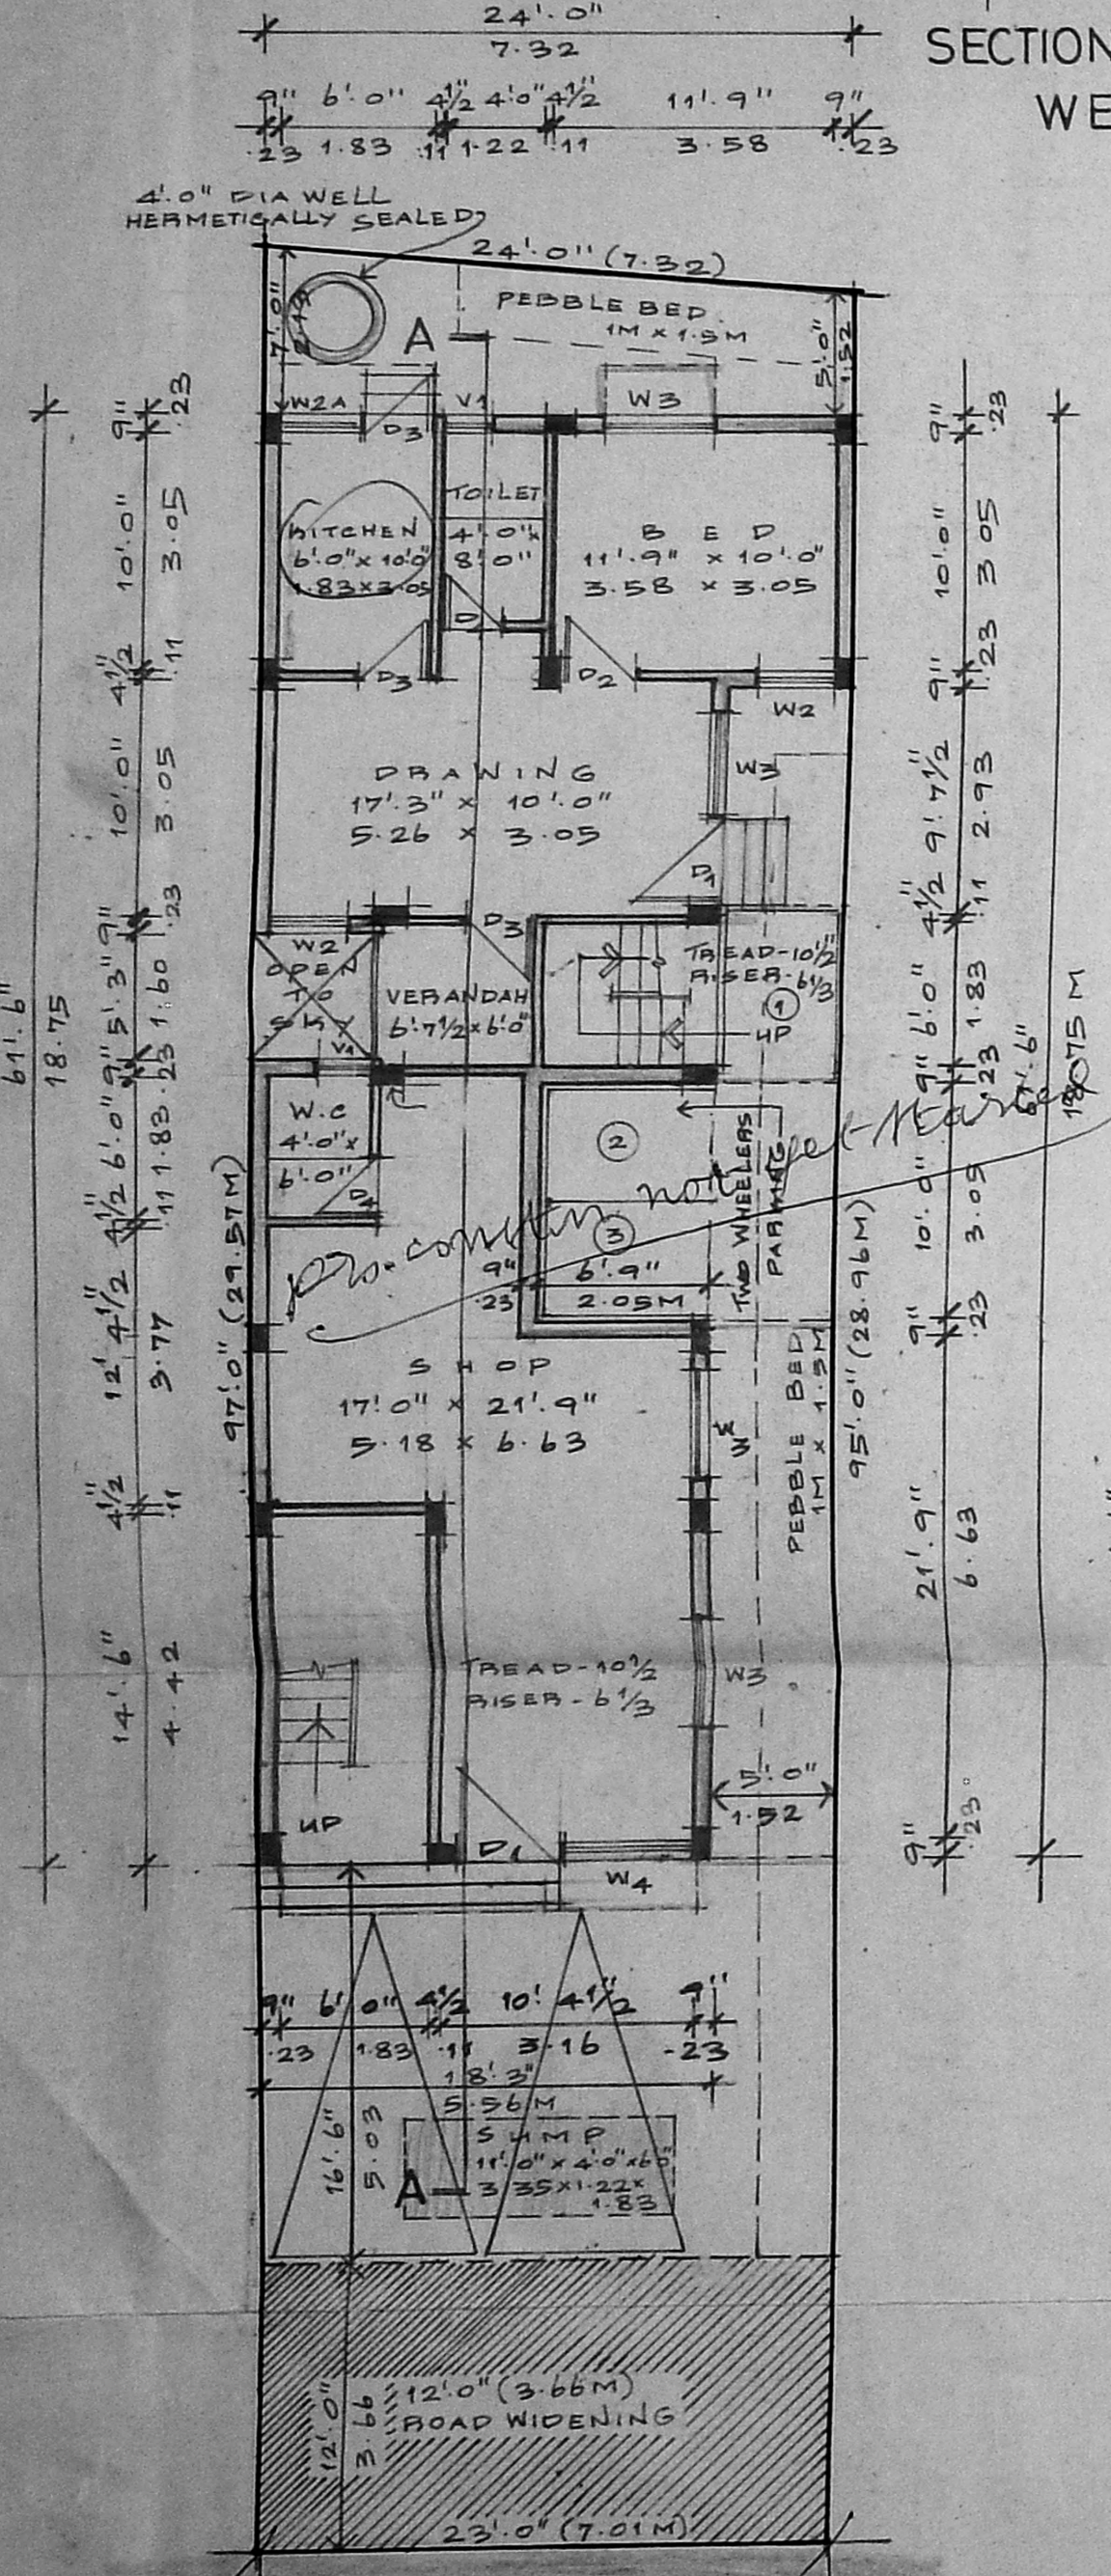 24'.0"
7.32
SECTION
WE
9" 6'.0" 4½" 4'.0" 4½" 11'.9" 9"
.23 1.83 .11 1.22 .11 3.58 .23
4'.0" DIA WELL
HERMETICALLY SEALED
24'.0" (7.32)
PEBBLE BED.
1M x 1.5M
A
7'.0"
2.13
5'.0"
1.52
W2A
D3
V1
W3
TOILET
4'.0"x
8'.0"
KITCHEN
6'.0" x 10'.0"
1.83 x 3.05
BED
11'.9" x 10'.0"
3.58 x 3.05
D3
D2
W2
W3
DRAWING
17'.3" x 10'.0"
5.26 x 3.05
D1
D3
W2
OPEN
TO
SKY
V1
VERANDAH
6'.7½ x 6'.0"
TREAD-10½
RISER-6⅓
1
UP
W.C
4'.0" x
6'.0"
2
3
TWO WHEELERS
PARKING
not
9"
.23
6'.9"
2.05M
SHOP
17'.0" x 21'.9"
5.18 x 6.63
W3
PEBBLE BED
1M x 1.5M
97'.0" (29.57M)
95'.0" (28.96M)
TREAD-10½
RISER-6⅓
W3
5'.0"
1.52
UP
D1
W4
61'.6"
18.75
9" 10'.0" 4½" 10'.0" 9" 5'.3" 9" 6'.0" 4½" 12' 4½" 4½" 14'.6"
.23 3.05 .11 3.05 .23 1.60 .23 1.83 .11 3.77 .11 4.42
9" 10'.0" 9" 9'.7½" 4½" 6'.0" 9" 10'.0" 9" 21'.9" 9"
.23 3.05 .23 2.93 .11 1.83 .23 3.05 .23 6.63 .23
75 M
9" 6'.0" 4½ 10'.4½" 9"
.23 1.83 .11 3.16 .23
18'.3"
5.56 M
16'.6"
5.03
SUMP
11'.0" x 4'.0" x 6'0"
3.35 x 1.22 x
1.83
A
12'.0" (3.66M)
ROAD WIDENING
12'.0"
3.66
23'.0" (7.01M)